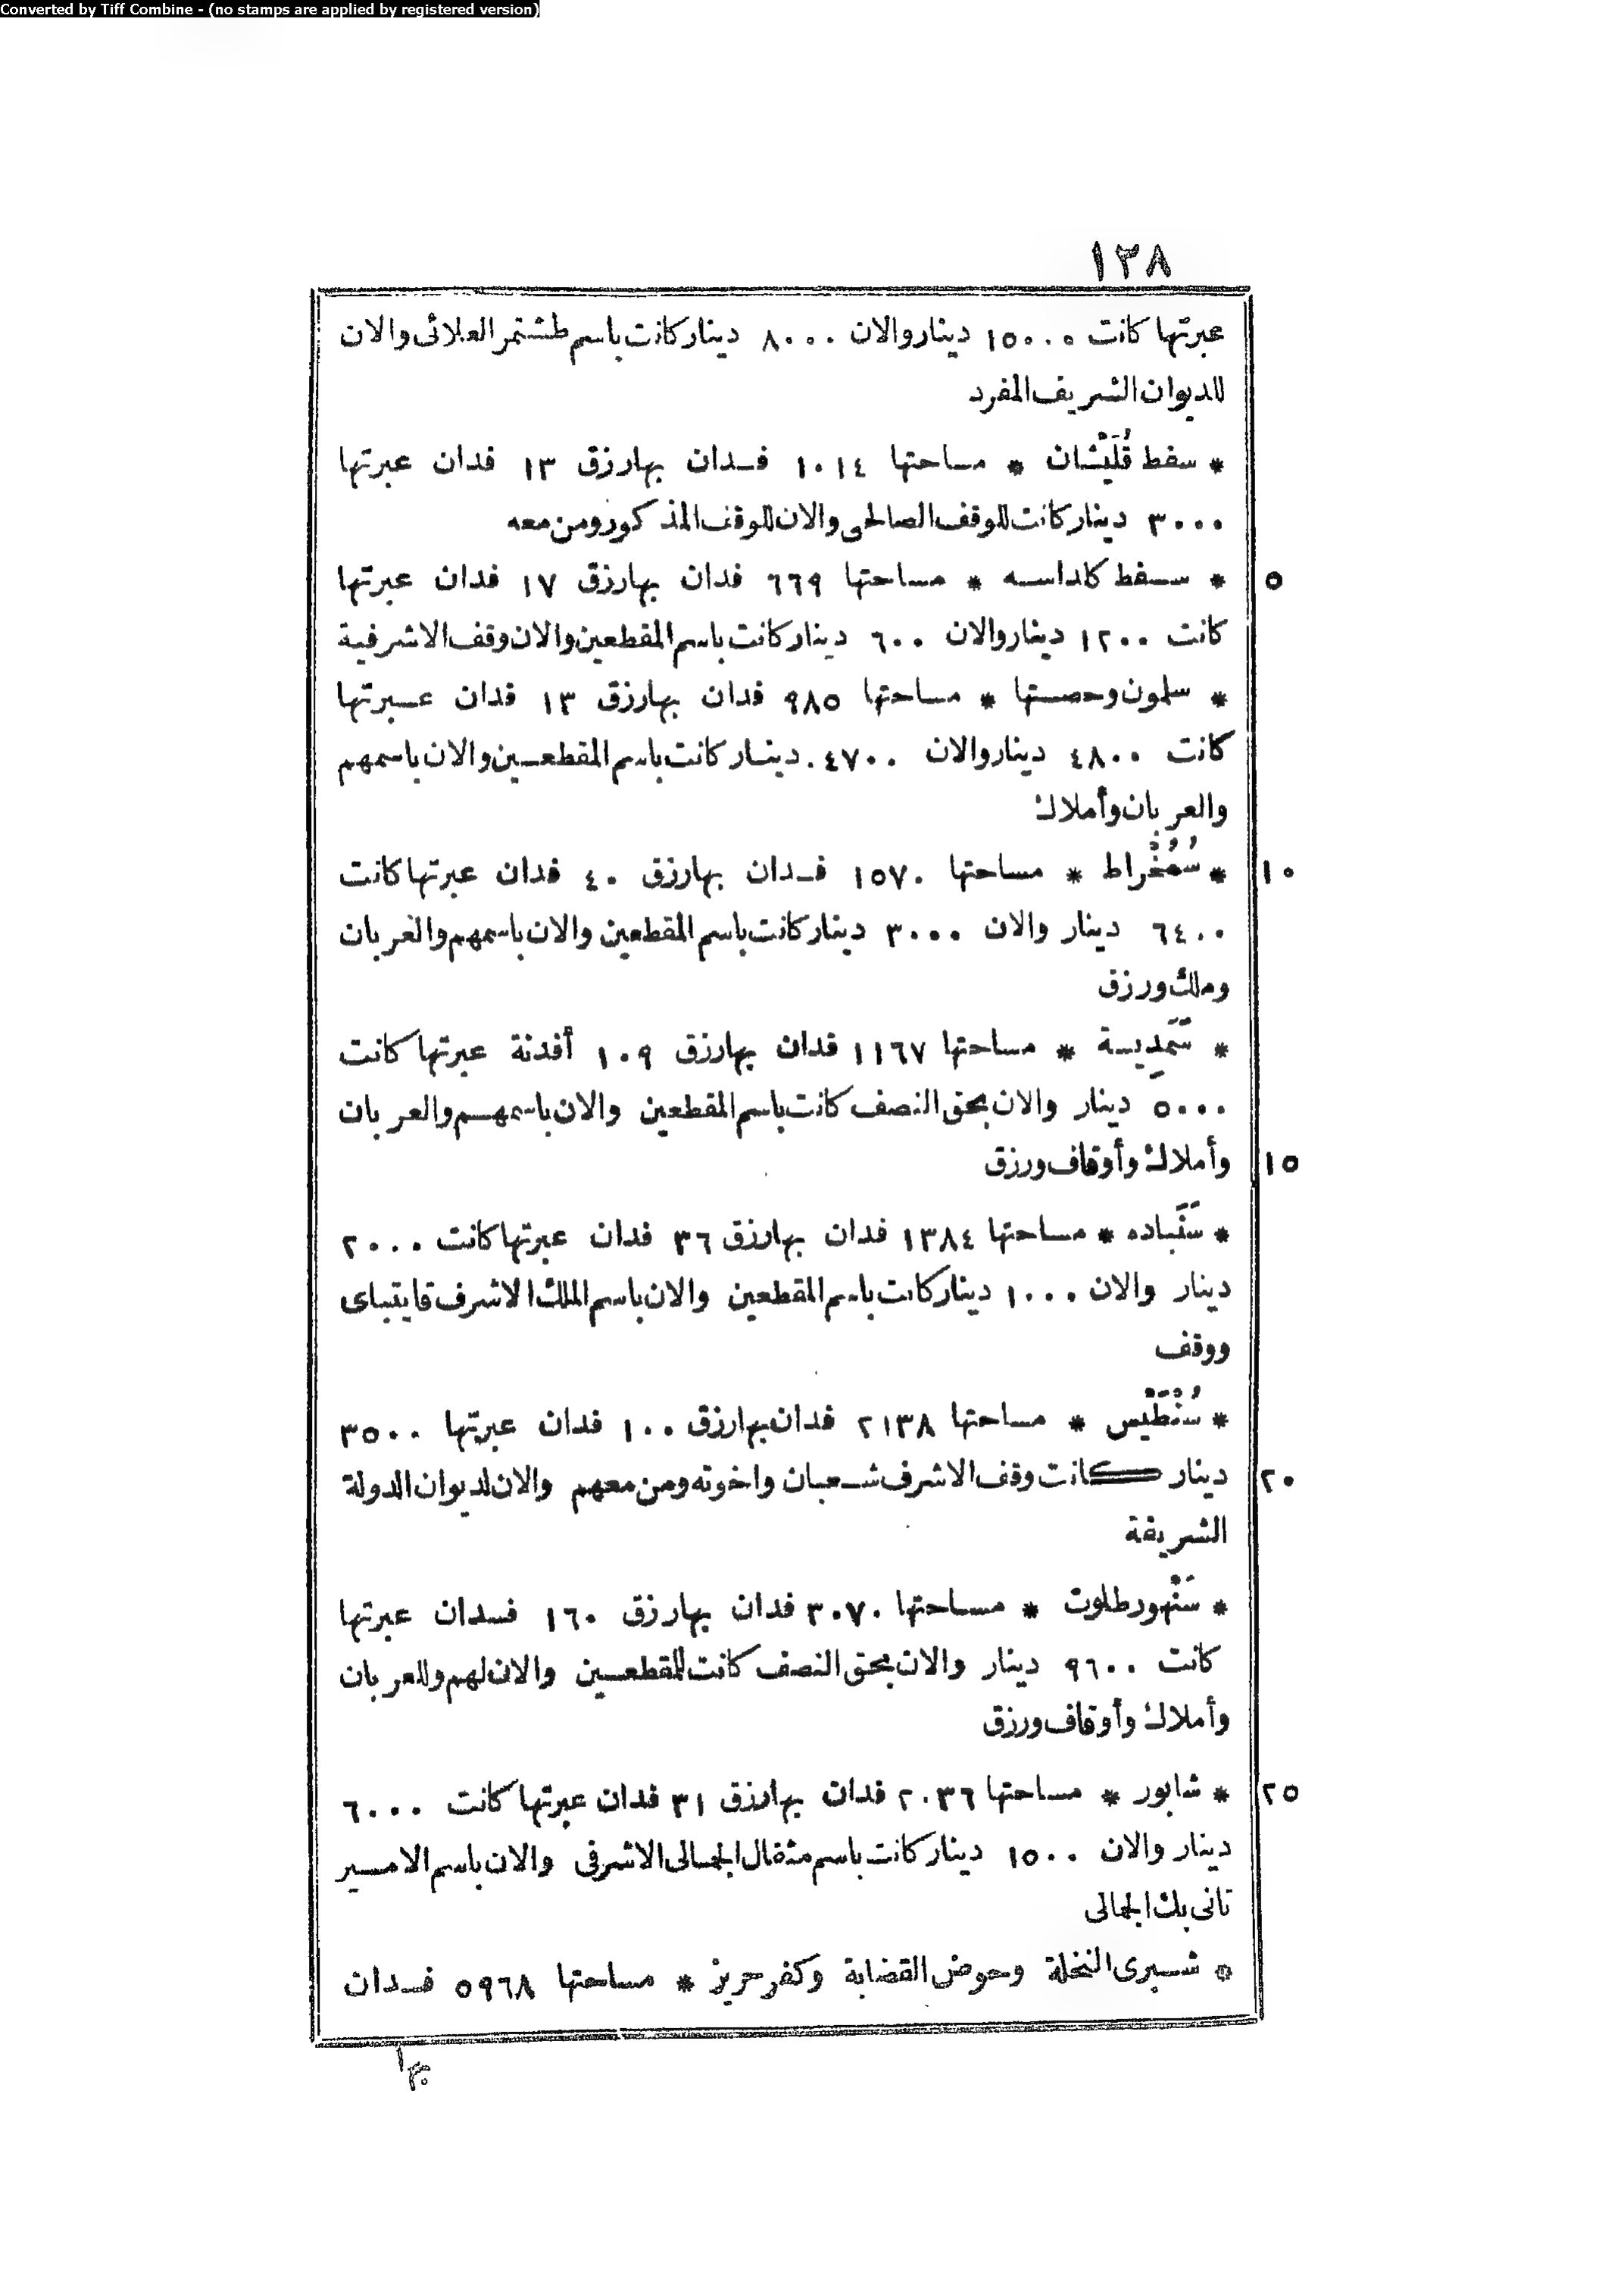 Converted by Tiff Combine - (no stamps are applied by registered version)
١٣٨
عبرتها كانت ١٥٠٠٠ دينار والان ٨٠٠٠ دينار كانت باسم طشتمر العلائى والان
للديوان الشريف المفرد
* سفط قُلَيْشان * مساحتها ١٠١٤ فدان بها رزق ١٣ فدان عبرتها
٣٠٠٠ دينار كانت للوقف الصالحى والان للوقف المذكور ومن معه
٥ * سفط كداسه * مساحتها ٦٦٩ فدان بها رزق ١٧ فدان عبرتها
كانت ١٢٠٠ دينار والان ٦٠٠ دينار كانت باسم المقطعين والان وقف الاشرفية
* سلمون وحصتها * مساحتها ٩٨٥ فدان بها رزق ١٣ فدان عبرتها
كانت ٤٨٠٠ دينار والان ٤٧٠٠ دينار كانت باسم المقطعين والان باسمهم
والعربان وأملاك
١٠ * سُمُخْراط * مساحتها ١٥٧٠ فدان بها رزق ٤٠ فدان عبرتها كانت
٦٤٠٠ دينار والان ٣٠٠٠ دينار كانت باسم المقطعين والان باسمهم والعربان
وملك ورزق
* سَمَدِيسة * مساحتها ١١٦٧ فدان بها رزق ١٠٩ أفدنة عبرتها كانت
٥٠٠٠ دينار والان بحق النصف كانت باسم المقطعين والان باسمهم والعربان
١٥ وأملاك وأوقاف ورزق
* سَنَباده * مساحتها ١٣٨٤ فدان بها رزق ٣٦ فدان عبرتها كانت ٢٠٠٠
دينار والان ١٠٠٠ دينار كانت باسم المقطعين والان باسم الملك الاشرف قايتباى
ووقف
* سُنْطَيْس * مساحتها ٢١٣٨ فدان بها رزق ١٠٠ فدان عبرتها ٣٥٠٠
٢٠ دينار كانت وقف الاشرف شعبان واخوته ومن معهم والان لديوان الدولة
الشريفة
* سَنْهور طلوت * مساحتها ٣٠٧٠ فدان بها رزق ١٦٠ فدان عبرتها
كانت ٩٦٠٠ دينار والان بحق النصف كانت للمقطعين والان لهم وللعربان
وأملاك وأوقاف ورزق
٢٥ * شابور * مساحتها ٢٠٣٦ فدان بها رزق ٣١ فدان عبرتها كانت ٦٠٠٠
دينار والان ١٥٠٠ دينار كانت باسم مثقال الجمالى الاشرفى والان باسم الامير
تانى بك الجمالى
* شبرى النخلة وحوض القضابة وكفر حريز * مساحتها ٥٩٦٨ فدان